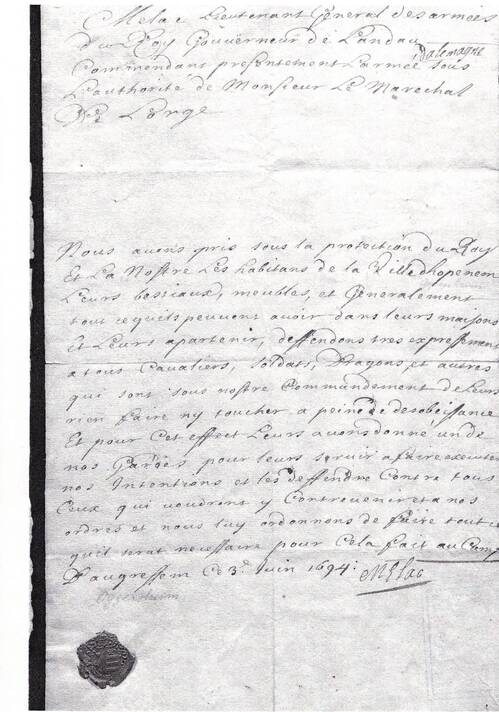 Melac Lieutenant General des armées
Du Roy Gouverneur de Landau
Commandant presentement L'armée d'alemagne sous
L'authorité de Monsieur Le Marechal
De Lorge
Nous avons pris sous la protection du Roy
Et La Nostre Les habitans de la Ville dhopenem
Leurs bessiaux, meubles, et Generalement
tout ce quils peuvent avoir dans leurs maisons
Et Leurs apartenir, deffendons tres expressement
a tous Cavaliers, soldats, Dragons, et autres
qui sont sous nostre Commendement de Leurs
rien faire ny toucher a peine de desobeissance
Et pour Cet effect Leurs avons donné un de
nos Gardes pour leurs servir a faire executer
nos Intentions et les deffendre Contre tous
Ceux qui voudront y Contrevenir et a nos
ordres et nous luy ordonnons de faire tout ce
quil serat nessessaire pour Cela fait au Camp
D'augressem Ce 3e Juin 1694.
Melac